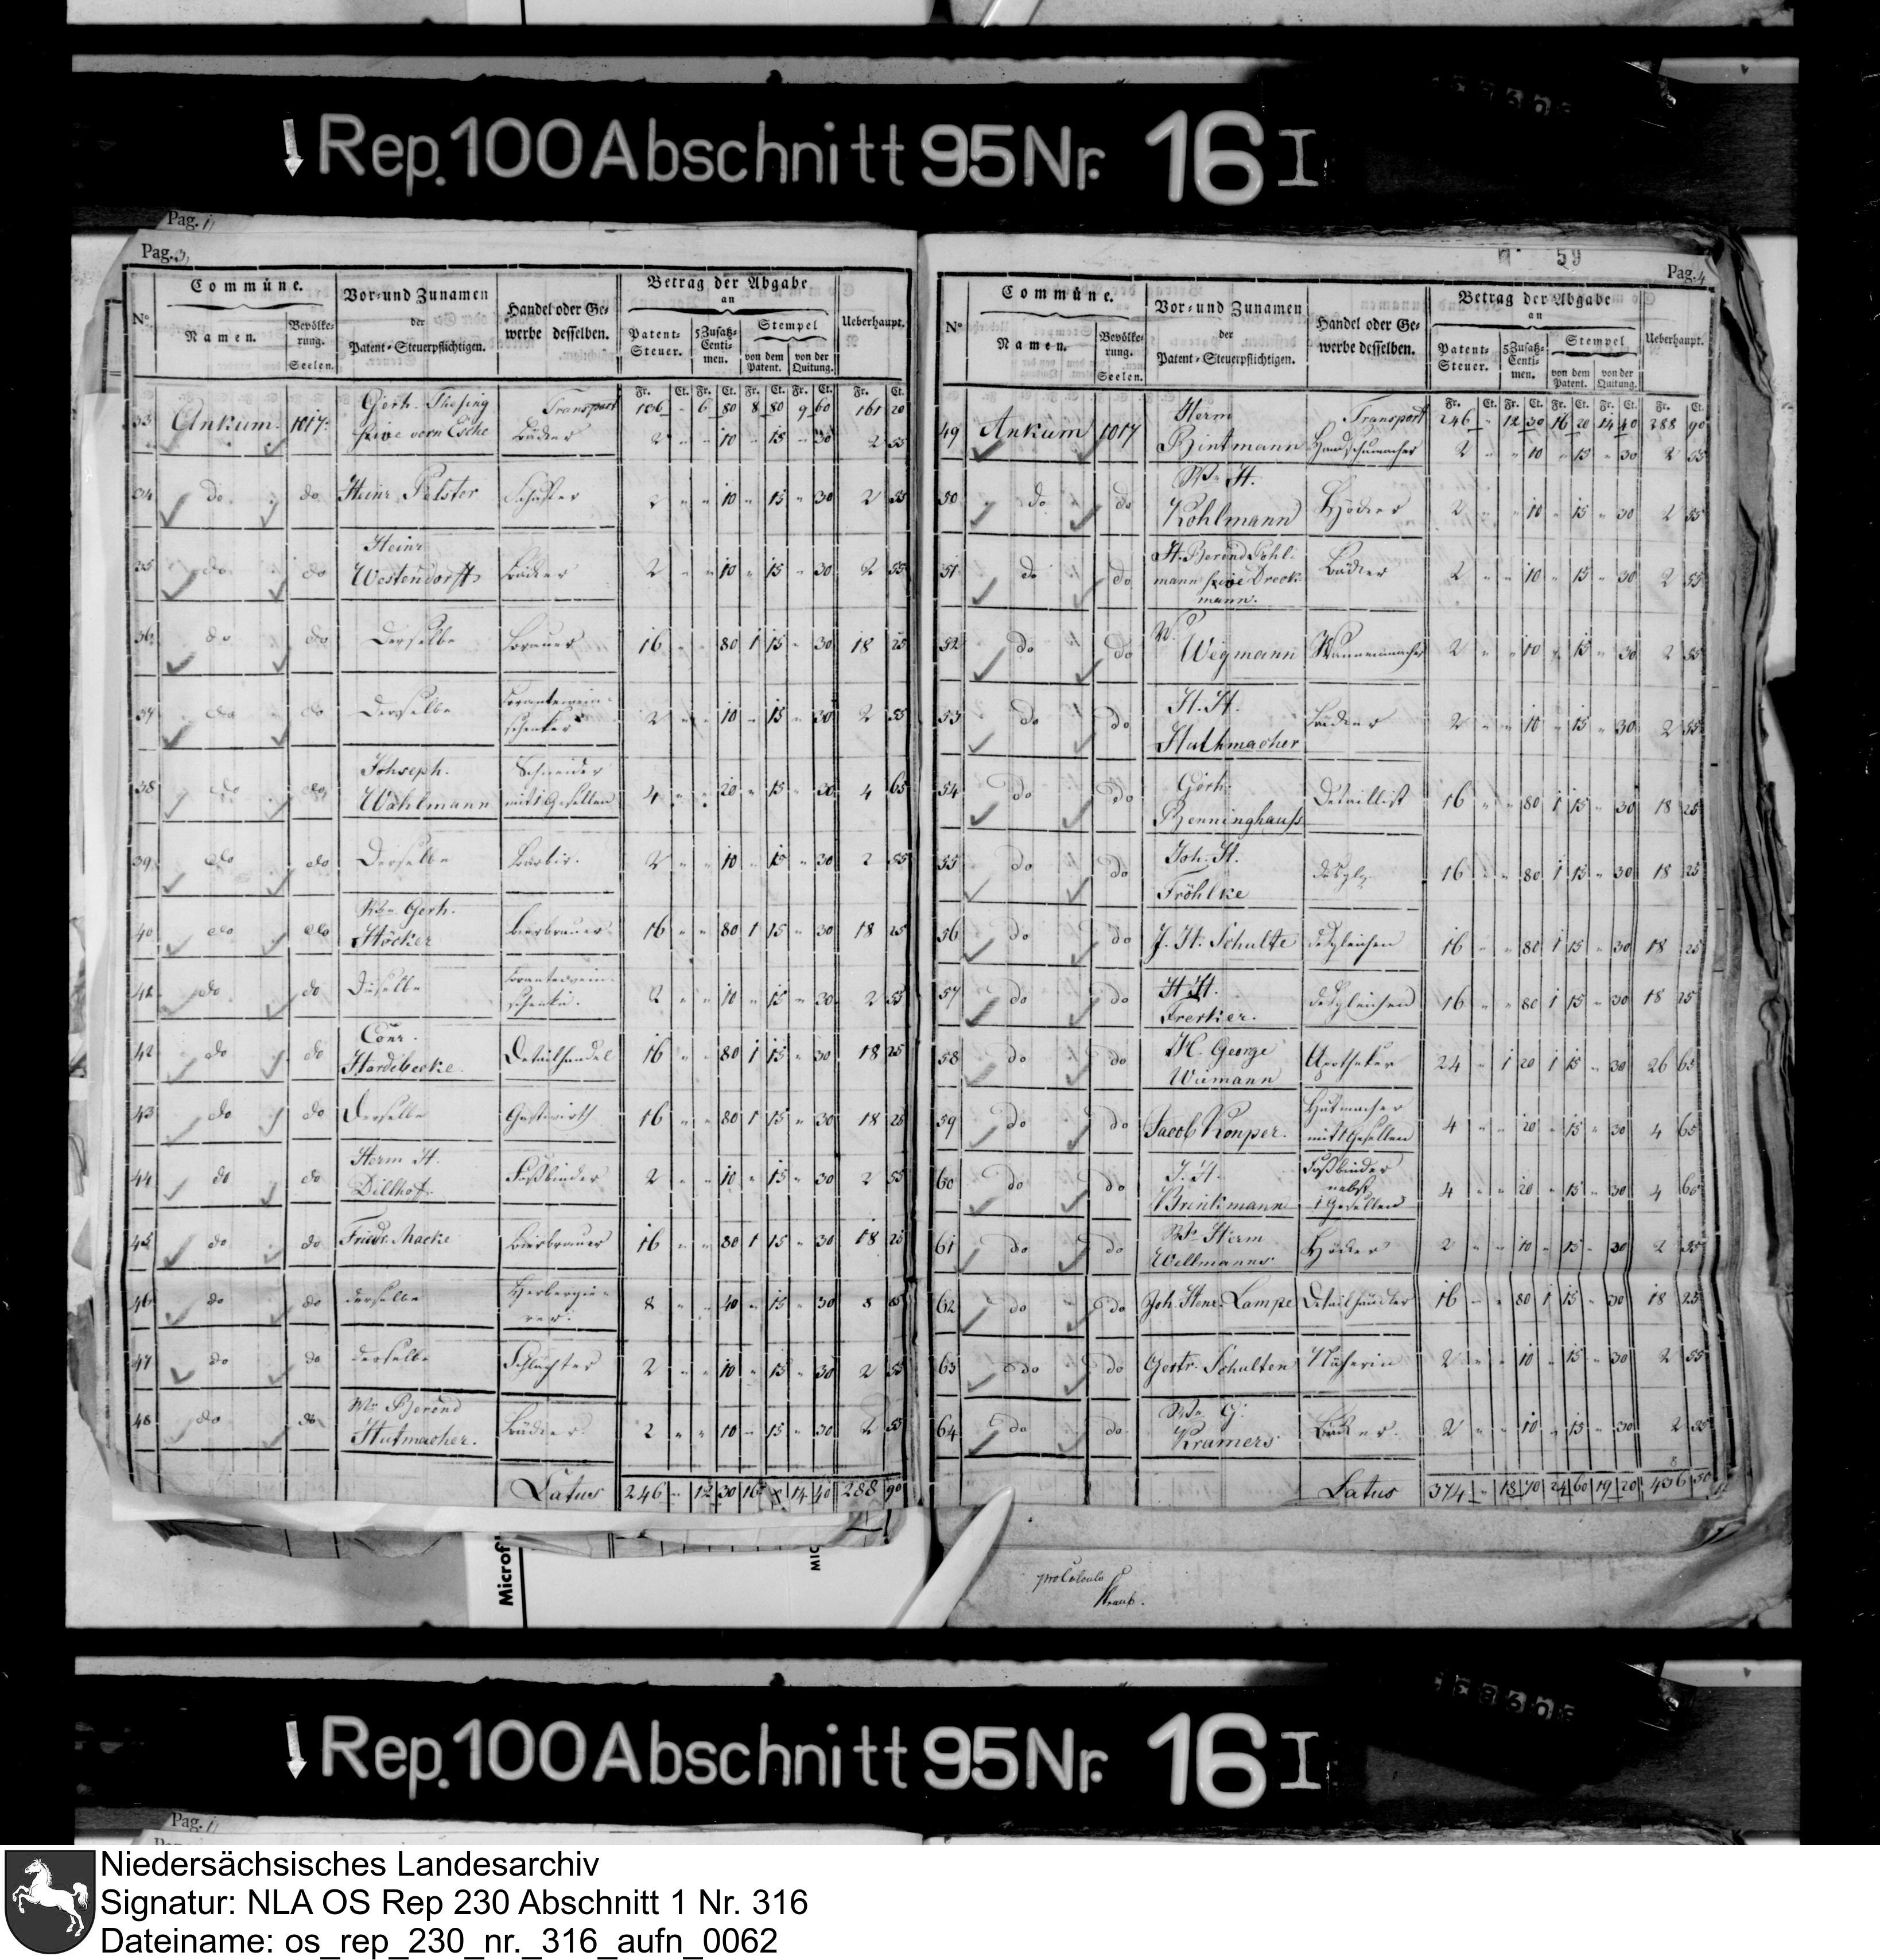 Rep. 100 Abschnitt 95 Nr. 16 I
Pag. 1
Pag. 3
N°
Commüne.
Namen.
Bevölke-
rung.
Seelen.
Vor- und Zunamen
der
Patent-Steuerpflichtigen.
Handel oder Ge-
werbe desselben.
Betrag der Abgabe
an
Patent-
Steuer.
5 Zusatz-
Centi-
men.
Stempel
von dem
Patent.
von der
Quitung.
Ueberhaupt.
Fr. Ct. Fr. Ct. Fr. Ct. Fr. Ct. Fr. Ct.
Transport 106 " 6 80 8 80 9 60 161 20
33 Ankum 1017 Gerh. Thesing sive vorm Esche Bäcker 2 " " 10 " 15 " 30 2 55
34 do do Heinr. Pelster Schuster 2 " " 10 " 15 " 30 2 55
35 do do Heinr. Westendorff Bäcker 2 " " 10 " 15 " 30 2 55
36 do do Derselbe Brauer 16 " " 80 1 15 " 30 18 25
37 do do Derselbe Branntewein-
schenker 2 " " 10 " 15 " 30 2 55
38 do do Johseph. Wahlmann Schneider mit 1 Gesellen 4 " " 20 " 15 " 30 4 65
39 do do Derselbe Barbir. 2 " " 10 " 15 " 30 2 55
40 do do Ww. Gerh. Höcker Bierbrauer 16 " " 80 1 15 " 30 18 25
41 do do Dieselbe Branntewein-
schenkin. 2 " " 10 " 15 " 30 2 55
42 do do Conr. Hardebecke. Detailhandel 16 " " 80 1 15 " 30 18 25
43 do do Derselbe Gastwirth 16 " " 80 1 15 " 30 18 25
44 do do Herm H. Dillhof. Faßbinder 2 " " 10 " 15 " 30 2 55
45 do do Friedr. Macke Bierbrauer 16 " " 80 1 15 " 30 18 25
46 do do derselbe 8 " " 40 " 15 " 30 8 85
47 do do derselbe Schlachter 2 " " 10 " 15 " 30 2 55
48 do do Ww Berend Hutmacher. Bäcker 2 " " 10 " 15 " 30 2 55
Latus 246 " 12 30 16 14 40 288 90
59
Pag. 4
N°
Commüne.
Namen.
Bevölke-
rung.
Seelen.
Vor- und Zunamen
der
Patent-Steuerpflichtigen.
Handel oder Ge-
werbe desselben.
Betrag der Abgabe
an
Patent-
Steuer.
5 Zusatz-
Centi-
men.
Stempel
von dem
Patent.
von der
Quitung.
Ueberhaupt.
Fr. Ct. Fr. Ct. Fr. Ct. Fr. Ct. Fr. Ct.
Transport 246 " 12 30 16 20 14 40 288 90
49 Ankum 1017 Herm Bintmann 2 " " 10 " 15 " 30 2 55
50 do do Ww. H. Kohlmann Höcker 2 " " 10 " 15 " 30 2 55
51 do do H. Berend Pohl-
mann sive Dreck-
mann. Bäcker 2 " " 10 " 15 " 30 2 55
52 do do W. Wegmann Wannenmacher 2 " " 10 " 15 " 30 2 55
53 do do H. H. Huthmacher Bäcker 2 " " 10 " 15 " 30 2 55
54 do do Gerh. Benninghauß Detaillist 16 " " 80 1 15 " 30 18 25
55 do do Joh. H. Fröhlke desgl. 16 " " 80 1 15 " 30 18 25
56 do do J. H. Schulte desgleichen 16 " " 80 1 15 " 30 18 25
57 do do H H. Frerker. desgleichen 16 " " 80 1 15 " 30 18 25
58 do do H. George Wiemann Apotheker 24 " 1 20 1 15 " 30 26 65
59 do do Jacob Konper. Hutmacher mit 1 Gesellen 4 " " 20 " 15 " 30 4 65
60 do do J. H. Brinkmann Faßbinder nebst 1 Gesellen 4 " " 20 " 15 " 30 4 65
61 do do Ww Herm Wellmanns Höcker 2 " " 10 " 15 " 30 2 55
62 do do Joh. Henr. Lampe Detailhändler 16 " " 80 1 15 " 30 18 25
63 do do Gertr. Schulten Näherin 2 " " 10 " 15 " 30 2 55
64 do do Ww. G. Kramers Bäcker. 2 " " 10 " 15 " 30 2 55
Latus 374 " 18 70 24 60 19 20 436 50
pro Calculo
Microf
MIC
Rep. 100 Abschnitt 95 Nr. 16 I
Pag. 1
Niedersächsisches Landesarchiv
Signatur: NLA OS Rep 230 Abschnitt 1 Nr. 316
Dateiname: os_rep_230_nr._316_aufn_0062